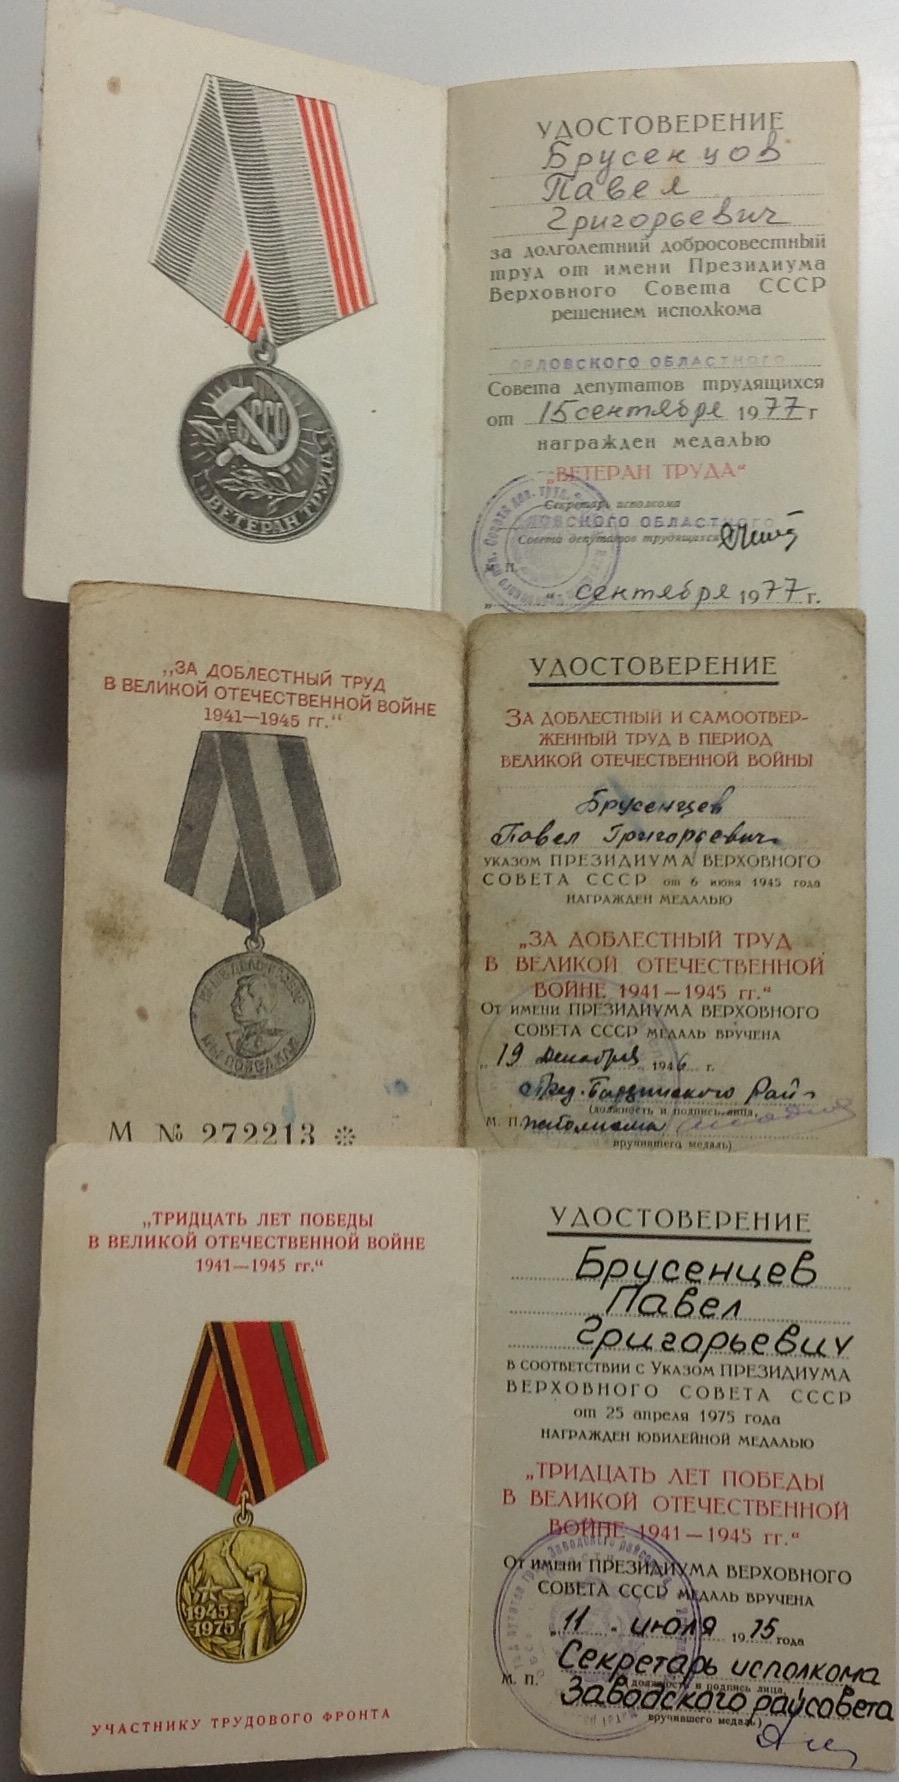 СССР
ВЕТЕРАН ТРУДА
УДОСТОВЕРЕНИЕ
Брусенцов
Павел
Григорьевич
за долголетний добросовестный
труд от имени Президиума
Верховного Совета СССР
решением исполкома
ОРЛОВСКОГО ОБЛАСТНОГО
Совета депутатов трудящихся
от 15 сентября 1977 г
награжден медалью
„ВЕТЕРАН ТРУДА“
Секретарь исполкома
ОРЛОВСКОГО ОБЛАСТНОГО
Совета депутатов трудящихся
М. П.
„ “ сентября 1977 г.
„ЗА ДОБЛЕСТНЫЙ ТРУД
В ВЕЛИКОЙ ОТЕЧЕСТВЕННОЙ ВОЙНЕ
1941—1945 гг.“
НАШЕ ДЕЛО ПРАВОЕ
МЫ ПОБЕДИЛИ
М № 272213 ※
УДОСТОВЕРЕНИЕ
ЗА ДОБЛЕСТНЫЙ И САМООТВЕР-
ЖЕННЫЙ ТРУД В ПЕРИОД
ВЕЛИКОЙ ОТЕЧЕСТВЕННОЙ ВОЙНЫ
Брусенцев
Павел Григорьевич
УКАЗОМ ПРЕЗИДИУМА ВЕРХОВНОГО
СОВЕТА СССР от 6 июня 1945 года
НАГРАЖДЕН МЕДАЛЬЮ
„ЗА ДОБЛЕСТНЫЙ ТРУД
В ВЕЛИКОЙ ОТЕЧЕСТВЕННОЙ
ВОЙНЕ 1941—1945 гг.“
От имени ПРЕЗИДИУМА ВЕРХОВНОГО
СОВЕТА СССР МЕДАЛЬ ВРУЧЕНА
„19 Декабря 1946 г.
Пред. Рай-
(должность и подпись лица,
М. П.
вручившего медаль)
„ТРИДЦАТЬ ЛЕТ ПОБЕДЫ
В ВЕЛИКОЙ ОТЕЧЕСТВЕННОЙ ВОЙНЕ
1941—1945 гг.“
1945-
1975
УЧАСТНИКУ ТРУДОВОГО ФРОНТА
УДОСТОВЕРЕНИЕ
Брусенцев
Павел
Григорьевич
В СООТВЕТСТВИИ С УКАЗОМ ПРЕЗИДИУМА
ВЕРХОВНОГО СОВЕТА СССР
от 25 апреля 1975 года
НАГРАЖДЕН ЮБИЛЕЙНОЙ МЕДАЛЬЮ
„ТРИДЦАТЬ ЛЕТ ПОБЕДЫ
В ВЕЛИКОЙ ОТЕЧЕСТВЕННОЙ
ВОЙНЕ 1941—1945 гг.“
От имени ПРЕЗИДИУМА ВЕРХОВНОГО
СОВЕТА СССР МЕДАЛЬ ВРУЧЕНА
„11 . июля 1975 года
Секретарь исполкома
М. П. (должность и подпись лица,
Заводского райсовета
вручившего медаль)